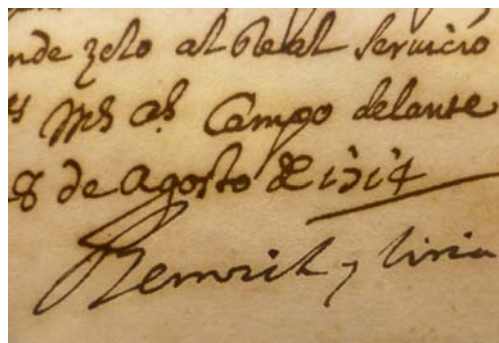 nde zelo al Real servicio
s ms as. Campo delante
8 de Agosto de 1714
Berwick y liria